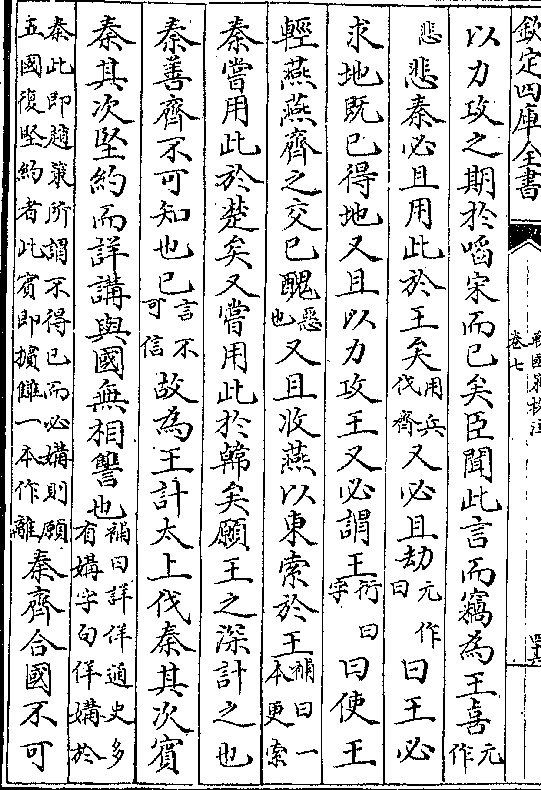 欽定四庫全書
戰國策校注
卷七
以力攻之期於啗宋而已矣臣聞此言而竊為王喜元作
悲悲秦必且用此於王矣用兵伐齊又必且劫元作曰曰王必
求地既已得地又且以力攻王又必謂王衍曰字曰使王
輕燕燕齊之交已醜惡也又且收燕以東索於王補曰一本更索
秦嘗用此於楚矣又嘗用此於韓矣願王之深計之也
秦善齊不可知也已言不可信故為王計太上伐秦其次賓
秦其次堅約而詳講與國無相讐也補曰詳佯通史多有媾字句佯媾於
秦此即趙策所謂不得已而必媾則願五國復堅約者此賓即擯讎一本作離秦齊合國不可